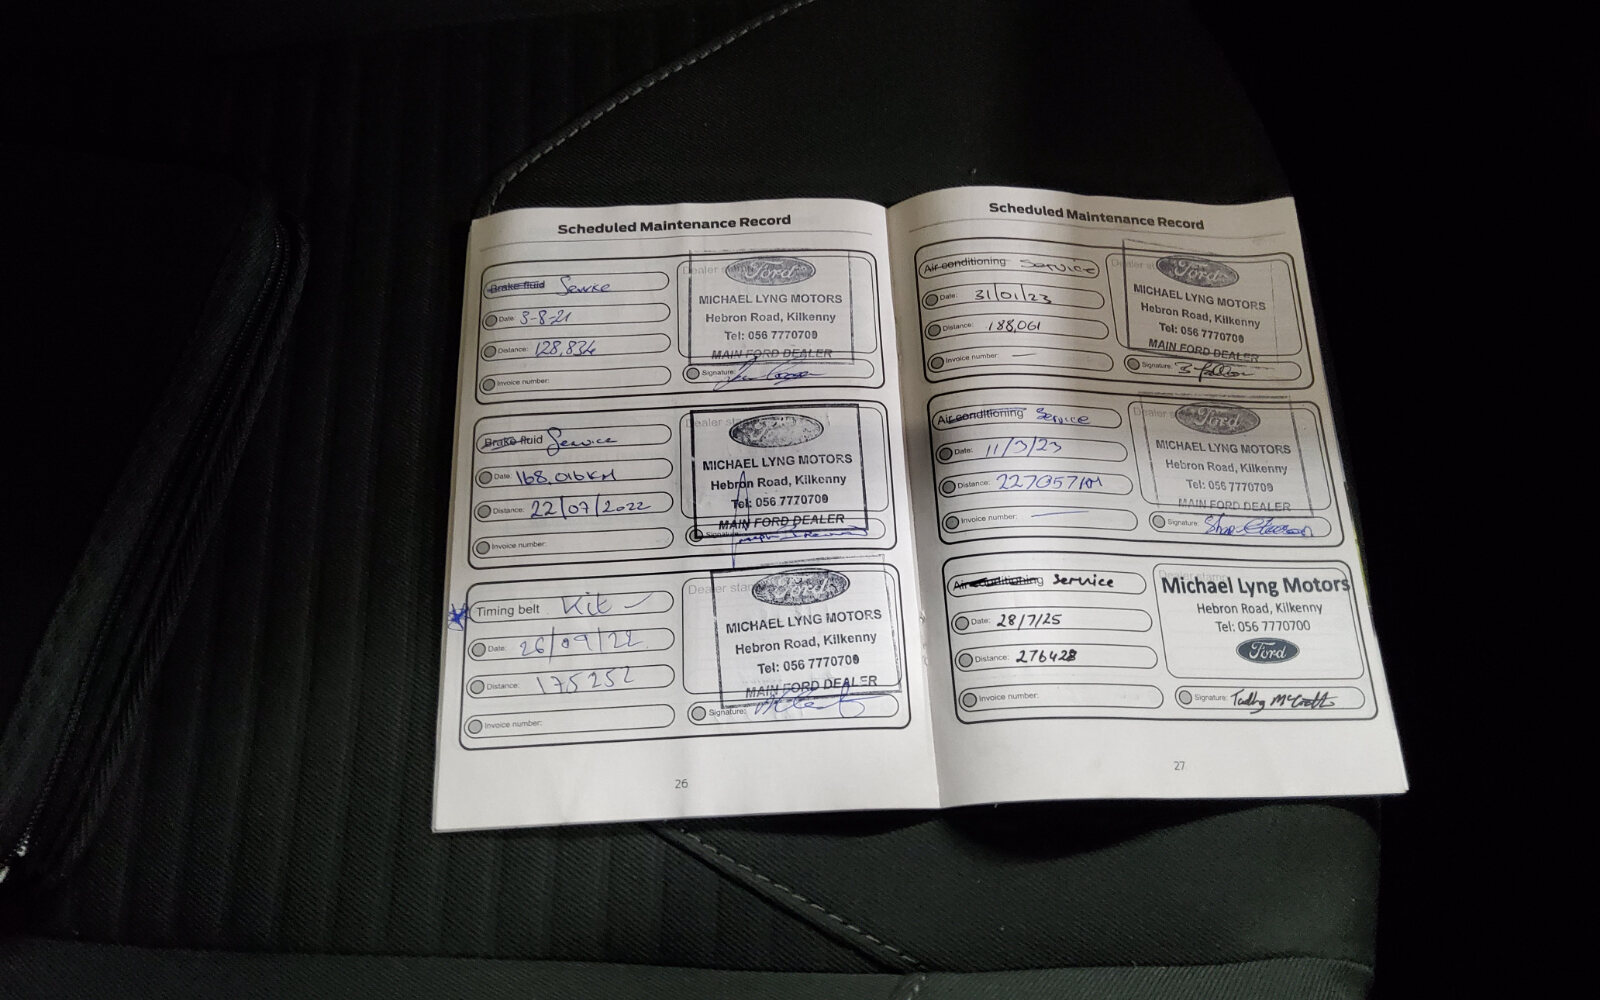 Scheduled Maintenance Record
Brake fluid Service
Date: 3-8-21
Distance: 128,834
Invoice number:
Dealer stamp
Ford
MICHAEL LYNG MOTORS
Hebron Road, Kilkenny
Tel: 056 7770700
MAIN FORD DEALER
Signature:
Brake fluid Service
Date: 168,016KM
Distance: 22/07/2022
Invoice number:
Dealer stamp
Ford
MICHAEL LYNG MOTORS
Hebron Road, Kilkenny
Tel: 056 7770700
MAIN FORD DEALER
Signature:
Timing belt Kit
Date: 26/09/22
Distance: 175252
Invoice number:
Dealer stamp
Ford
MICHAEL LYNG MOTORS
Hebron Road, Kilkenny
Tel: 056 7770700
MAIN FORD DEALER
Signature:
26
Scheduled Maintenance Record
Air conditioning Service
Date: 31/01/23
Distance: 188,061
Invoice number: —
Dealer stamp
Ford
MICHAEL LYNG MOTORS
Hebron Road, Kilkenny
Tel: 056 7770700
MAIN FORD DEALER
Signature:
Air conditioning Service
Date: 11/3/23
Distance: 227057KM
Invoice number: —
Dealer stamp
Ford
MICHAEL LYNG MOTORS
Hebron Road, Kilkenny
Tel: 056 7770700
MAIN FORD DEALER
Signature:
Air conditioning Service
Date: 28/7/25
Distance: 276428
Invoice number:
Dealer stamp
Michael Lyng Motors
Hebron Road, Kilkenny
Tel: 056 7770700
Ford
Signature: Tadhg McGrath
27